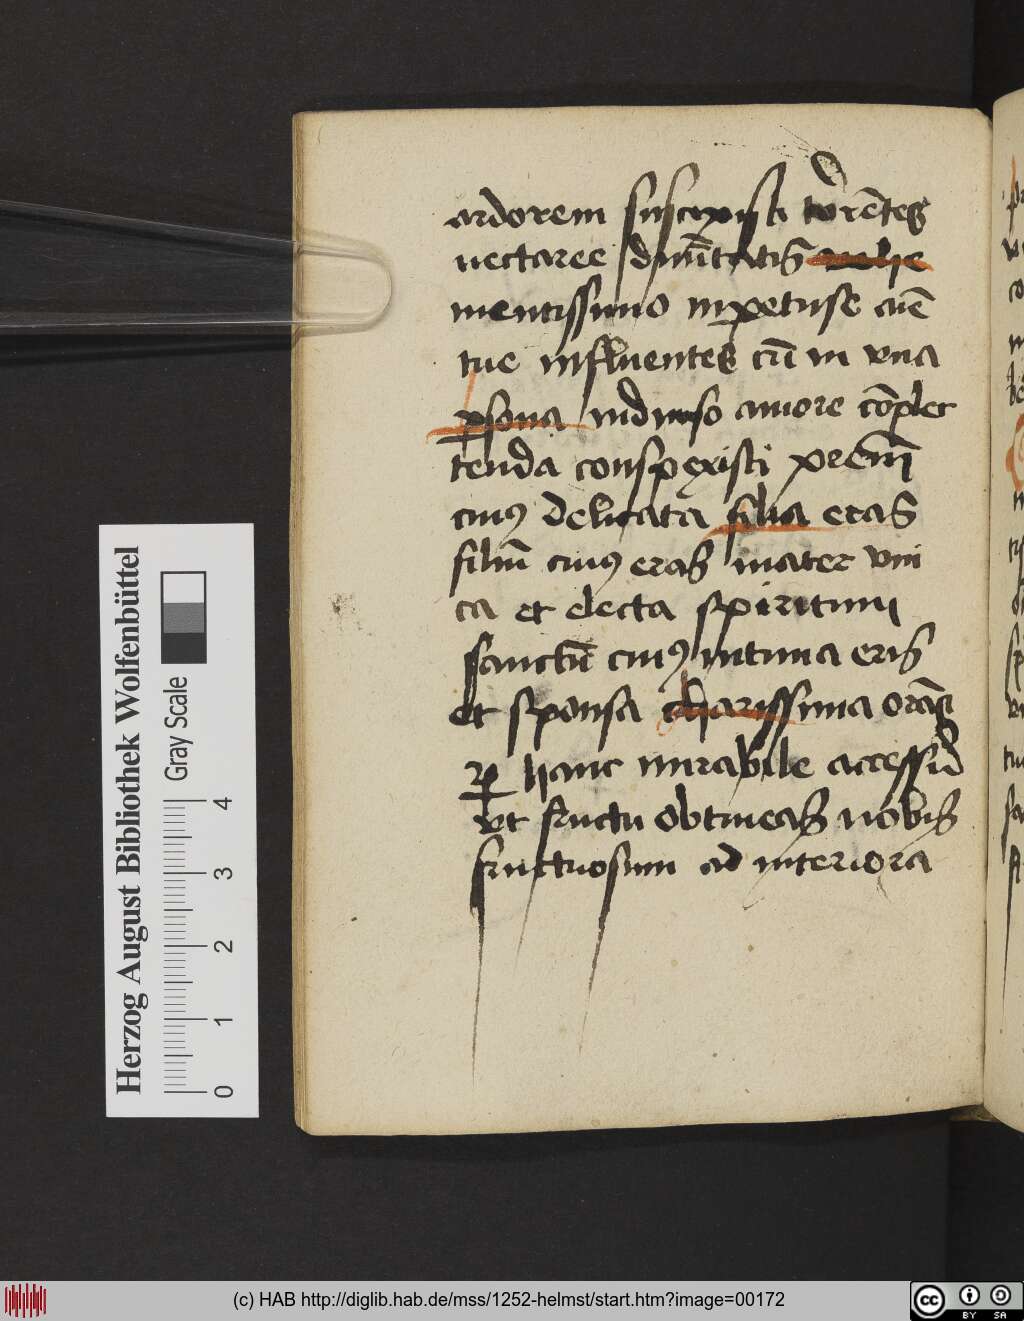 ardorem suscepisti torētes
nectaree diuītatis
mentissimo inpetuse
tue influentes cū in vna
ꝑsona indiuiso amore cōplec
tenda conspexisti prem̄
cuiꝯ delicata filia eras
filiū cuiꝯ eras mater vni
ca et electa spiritum
sanctū cuiꝯ intima eris
et sponsa charissima
ꝑ hanc mirabile accessū
vt fructu obtineas nobis
fructuosum ad interiora
Herzog August Bibliothek Wolfenbüttel
Gray Scale
0 1 2 3 4
(c) HAB http://diglib.hab.de/mss/1252-helmst/start.htm?image=00172
cc BY SA